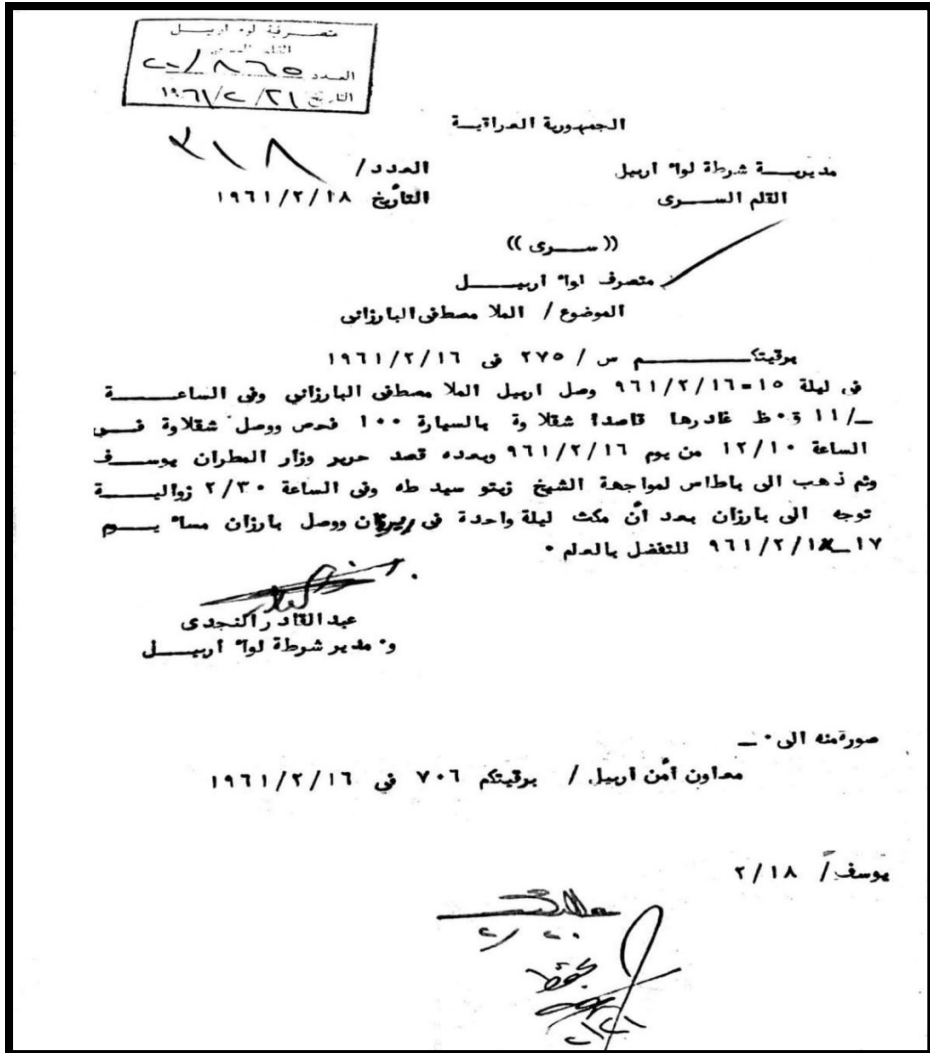 متصرفية لواء اربيل
القلم السري
العدد ٨٦٥/٢٠
التاريخ ١٩٦١/٢/٢١
الجمهورية العراقيـة
مديريـــة شرطة لواء اربيل
القلم الســـرى
العدد/ ٢١٨
التأريخ ١٩٦١/٢/١٨
(( ســـرى ))
متصرف لواء اربيـــل
الموضوع / الملا مصطفى البارزانى
برقيتكـــــم س / ٢٧٥ فى ١٩٦١/٢/١٦
فى ليلة ١٥-٩٦١/٢/١٦ وصل اربيل الملا مصطفى البارزاني وفى الساعـــة
ــ/١١ ق٠ظ غادرها قاصدا شقلاوة بالسيارة ١٠٠ فحص ووصل شقلاوة فـــي
الساعة ١٢/١٠ من يوم ٩٦١/٢/١٦ وبعده قصد حرير وزار المطران يوســف
وثم ذهب الى باطاس لمواجهة الشيخ زيتو سيد طه وفى الساعة ٢/٣٠ زواليـــة
توجه الى بارزان بعد أن مكث ليلة واحدة فى ووصل بارزان مساء يـــم
١٧ــ٩٦١/٢/١٨ للتفضل بالعلم ٠
عبدالقادر اكنجدى
و٠ مدير شرطة لواء أربيـــل
صورة منه الى ٠ ــ
معاون أمن اربيل / برقيتكم ٧٠٦ في ١٩٦١/٢/١٦
يوسف/ ٢/١٨
يحفظ